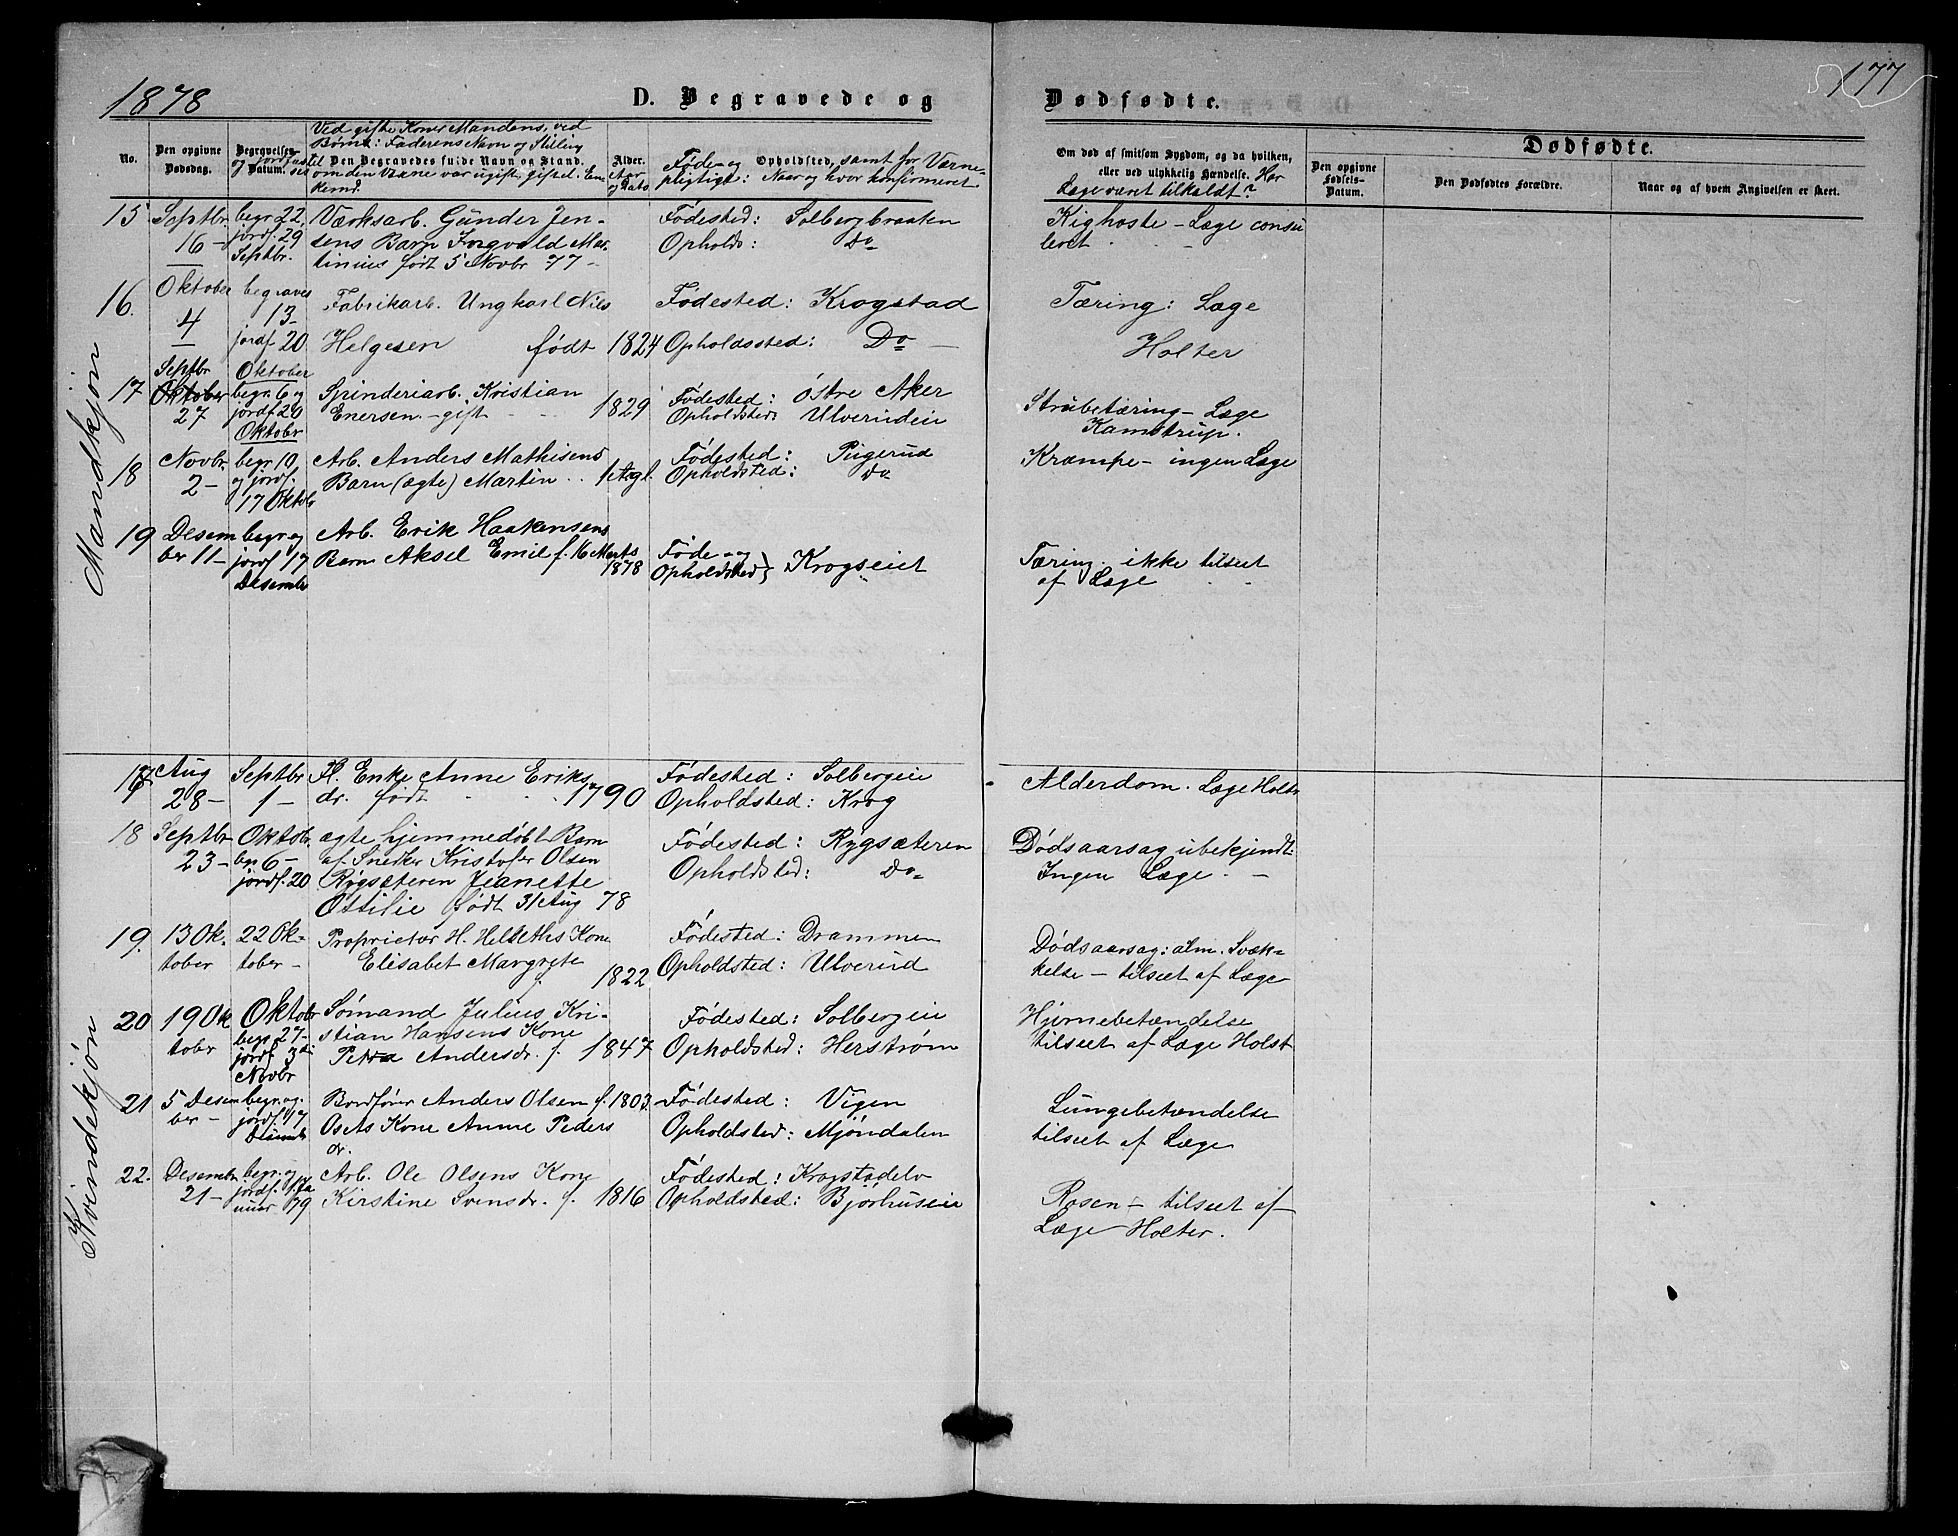 1878
D. Begravede og
Dødfødte.
177
No.
Den opgivne Dødsdag.
Begravelses og Jordfæstelses Datum.
Ved gifte Koner Mandens, ved
Børn: Faderens Navn og Stilling
Den Begravedes fulde Navn og Stand.
om den Værne var ugift, gift el. Enkemd.
Alder. Aar og Dato
Føde- og Opholdssted, samt for Værne-
pligtige: Naar og hvor konfirmeret
Om død af smitsom Sygdom, og da hvilken,
eller ved ulykkelig Hændelse. Har
Læge været tilkaldt?
Dødfødte.
Den opgivne Fødsels-Datum.
Den Dødfødtes Forældre.
Naar og af hvem Angivelsen er skeet.
Mandkjøn
15 Septbr. begr. 22 Værksarb. Gunder Jen- Fødested: Solbergbraaten Kighoste - Læge consu
16 - jordf. 29 sens Barn Ingvald Mar- Opholds: Do leret
Septbr. tinius født 5 Novbr 77 -
16. Oktober begraves Fabrikarb. Ungkarl Nils Fødested: Krogstad Tæring: Læge
4 13 - jordf 20 Helgesen født 1824 Opholdssted: Do - Holter
17 Septbr Oktober
Oktober begr. 6 og Spinderiarb. Kristian Fødested: Østre Aker Strubetæring - Læge
27 jordf 20 Enersen - gift 1829 Opholdsted: Ulverudeie Kamstrup.
Oktobr
18 Novbr. begr 10 Arb. Anders Mathisens Fødested: Pugerud Krampe - ingen Læge
2 - og jordf. Barn (ægte) Martin 1 Opholdsted: Do
17 Oktobr
19 Desem begr og Arb. Erik Haakensens
ber 11 - jordf 17 Barn Aksel Emil f. 16 Marts Føde - og Krogseiet Tæring. ikke tilseet
Desembr 1878 Opholdsted} af Læge
Kvindekjøn
17 Aug Septbr Fl. Enke Anne Eriks Fødested: Solbergeie Alderdom. Læge Holter
28 - 1 - dr. født 1790 Opholdsted: Krog
18 Septbr Oktobr. ægte hjemmedøbt Barn Fødested: Rygsæteren Dødsaarsag ubekjendt.
23 - 6 - af Sneker Kristofer Olsen Opholdsted: Do Ingen Læge. -
jordf. 20 Rygsæteren Jeanette
Ottilie født 31 Aug 78
19. 13 Ok- 22 Ok- Proprietær H. Helseths Kone Fødested: Drammen Dødsaarsag: alm. Svæk-
tober tober - Elisabet Margrete 1822 Opholdsted: Ulverud kelse - tilseet af Læge
20 19 Ok Oktobr Sømand Julius Kri- Fødested: Solbergeie Hjernebetændelse
tober begr 27 - stian Hansens Kone Opholdsted: Herstrøm tilseet af Læge Holst
jordf 3die Petra Andersdr. f. 1847
Novbr
21 5 Desem begr. og Bordfører Anders Olsen f. 1803 Fødested: Vigen Lungebetændelse
ber - jordf 17 Osets Kone Anne Peders Opholdsted: Mjøndalen tilseet af Læge
Desembr dr.
22. Desembr. begr. og Arb. Ole Olsens Kone Fødested: Krogstadelv Rosen - tilseet af
21 - jordf. Ja Kirstine Svensdr. f. 1816 Opholdsted: Bjørhuseie Læge Holter.
nuar 79